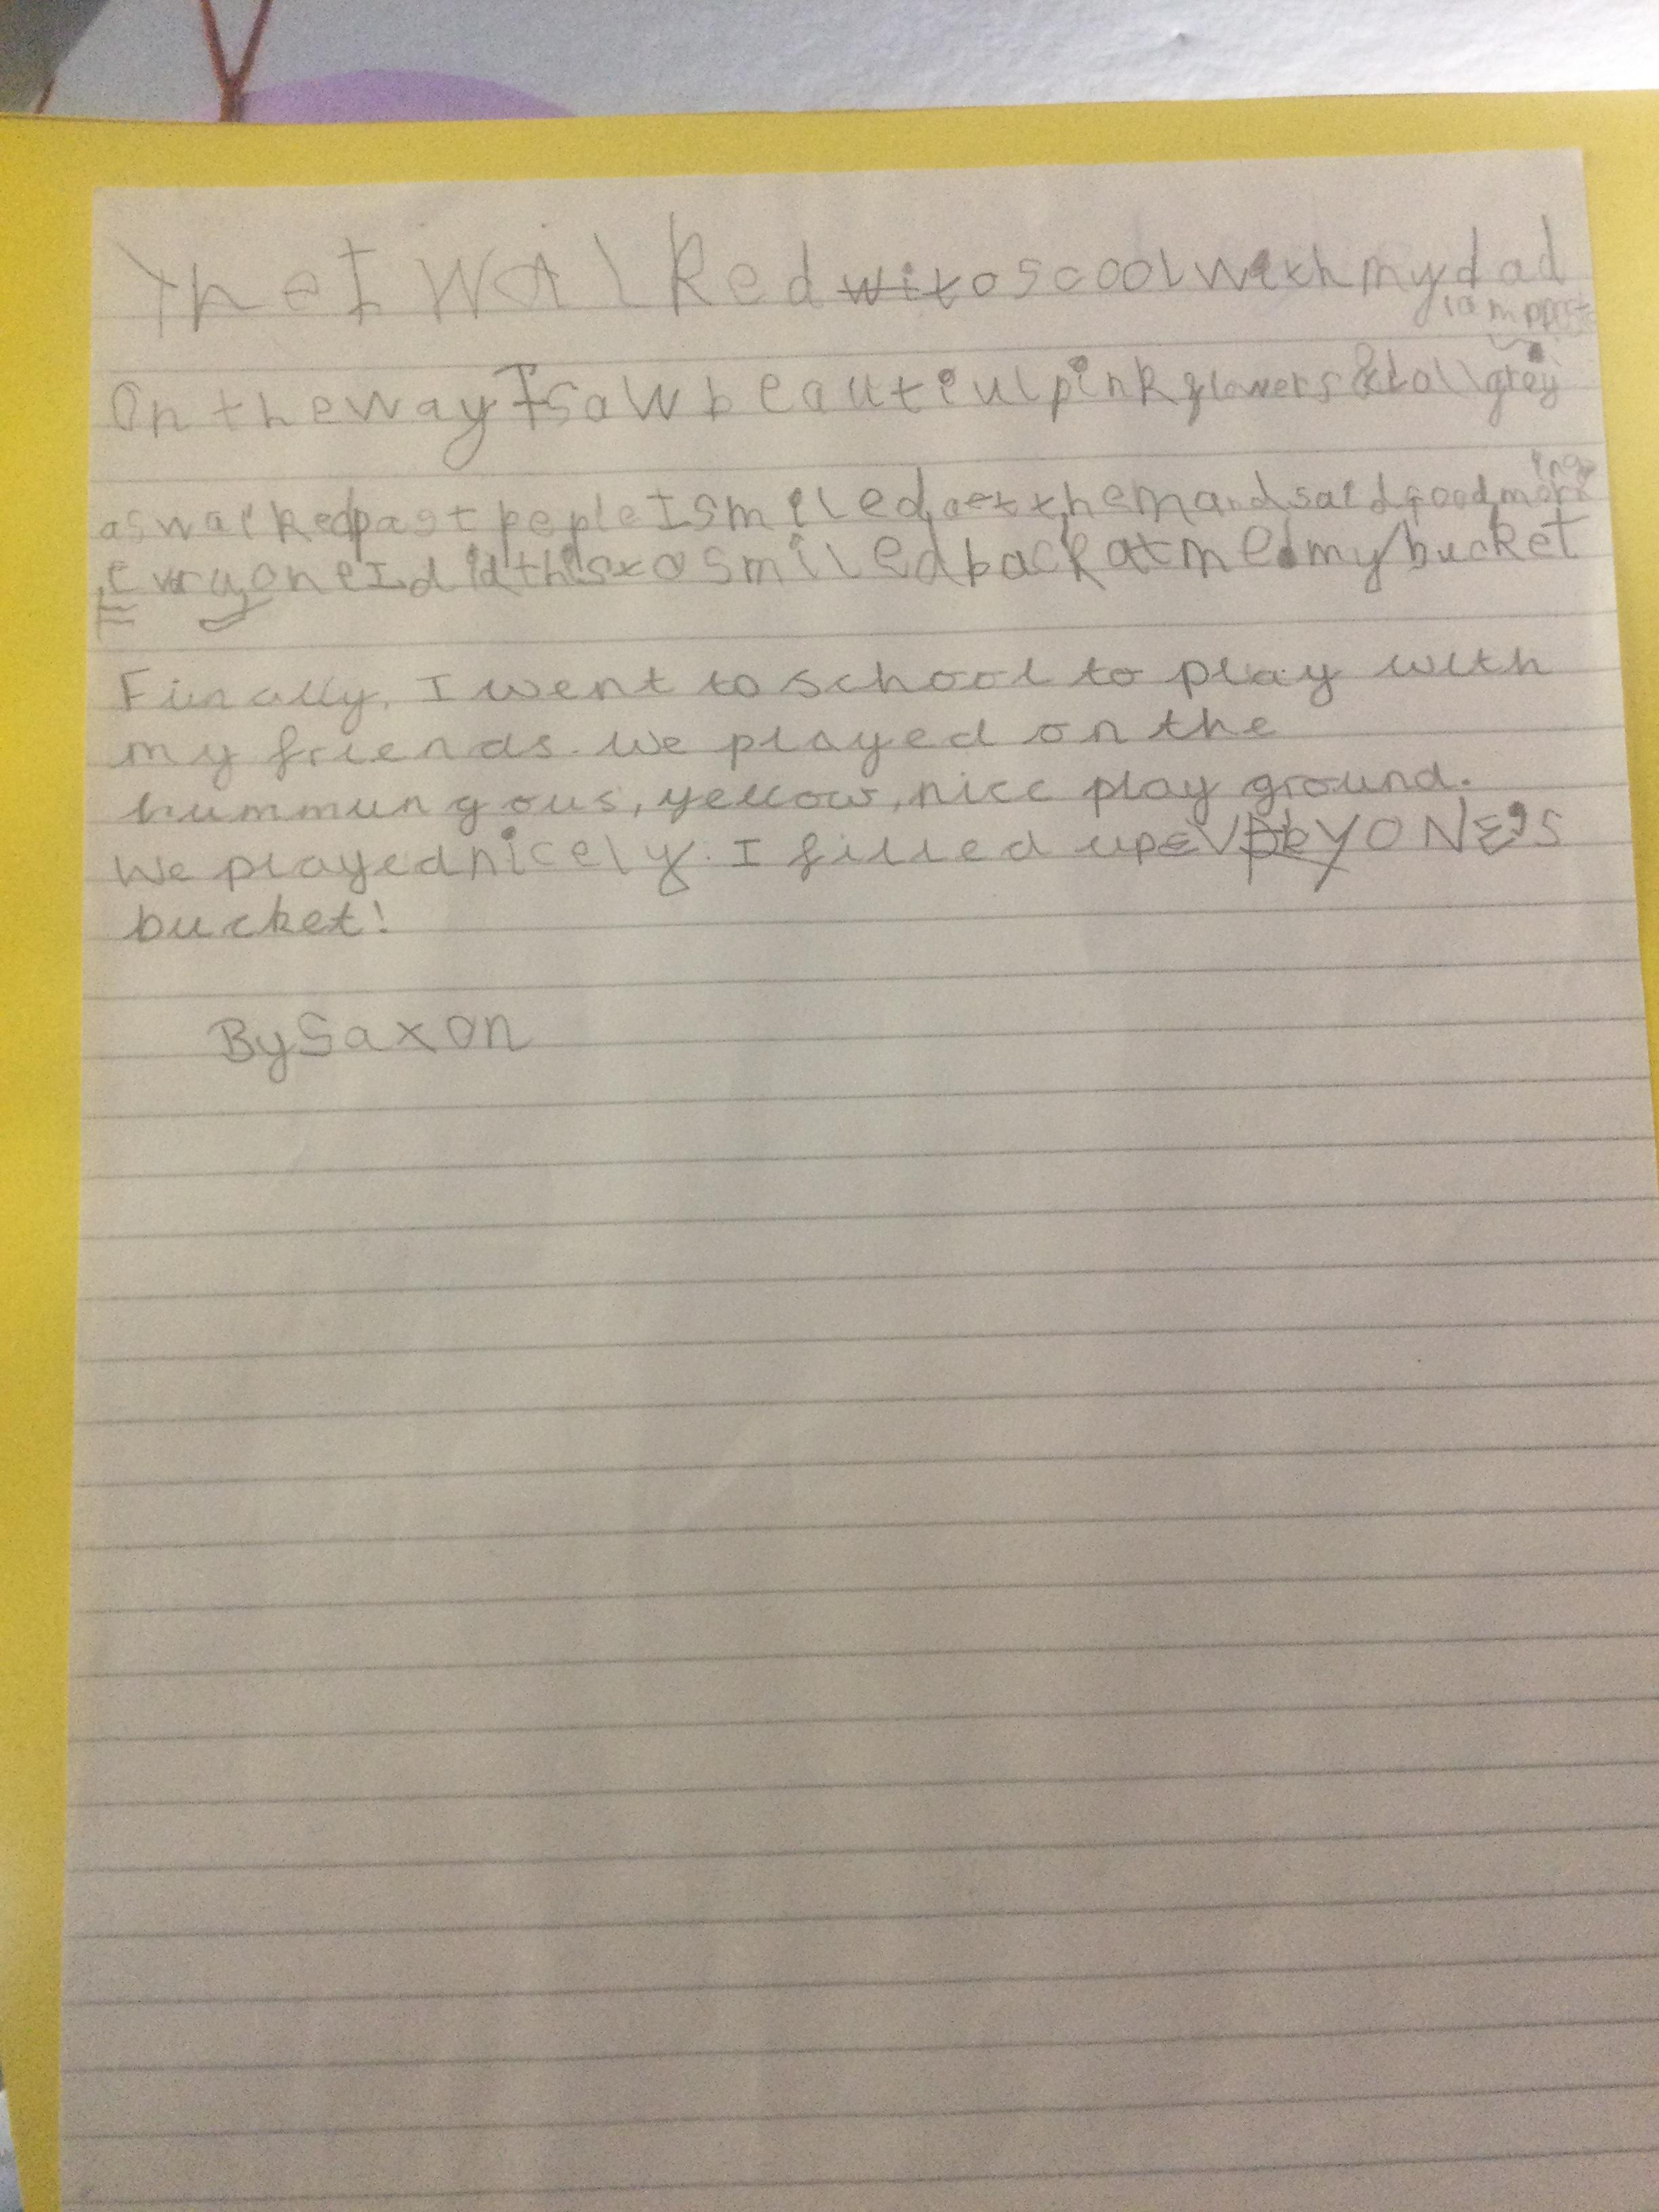 The I walked wito scool with my dad
On the way I saw beautiful pink flowers & tall grey
lampposts
as walked past pepple I smiled at them and said good morning
Evryone I did this to smiled back at me. my bucket
Finally, I went to school to play with
my friends. We played on the
hummungous, yellow, nice play ground.
We played nicely. I filled up EVRYONE'S
bucket!
By Saxon